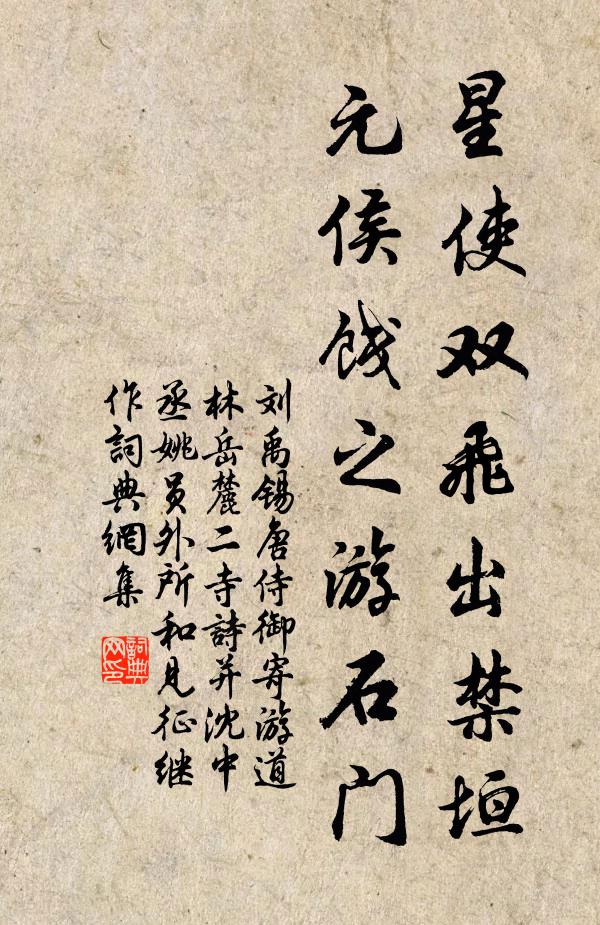 星使双飛出禁垣
元侯餞之游石门
刘禹锡唐侍御寄游道
林岳麓二寺詩并沈中
丞姚員外所和見征继
作詞典網集
詞典
网印